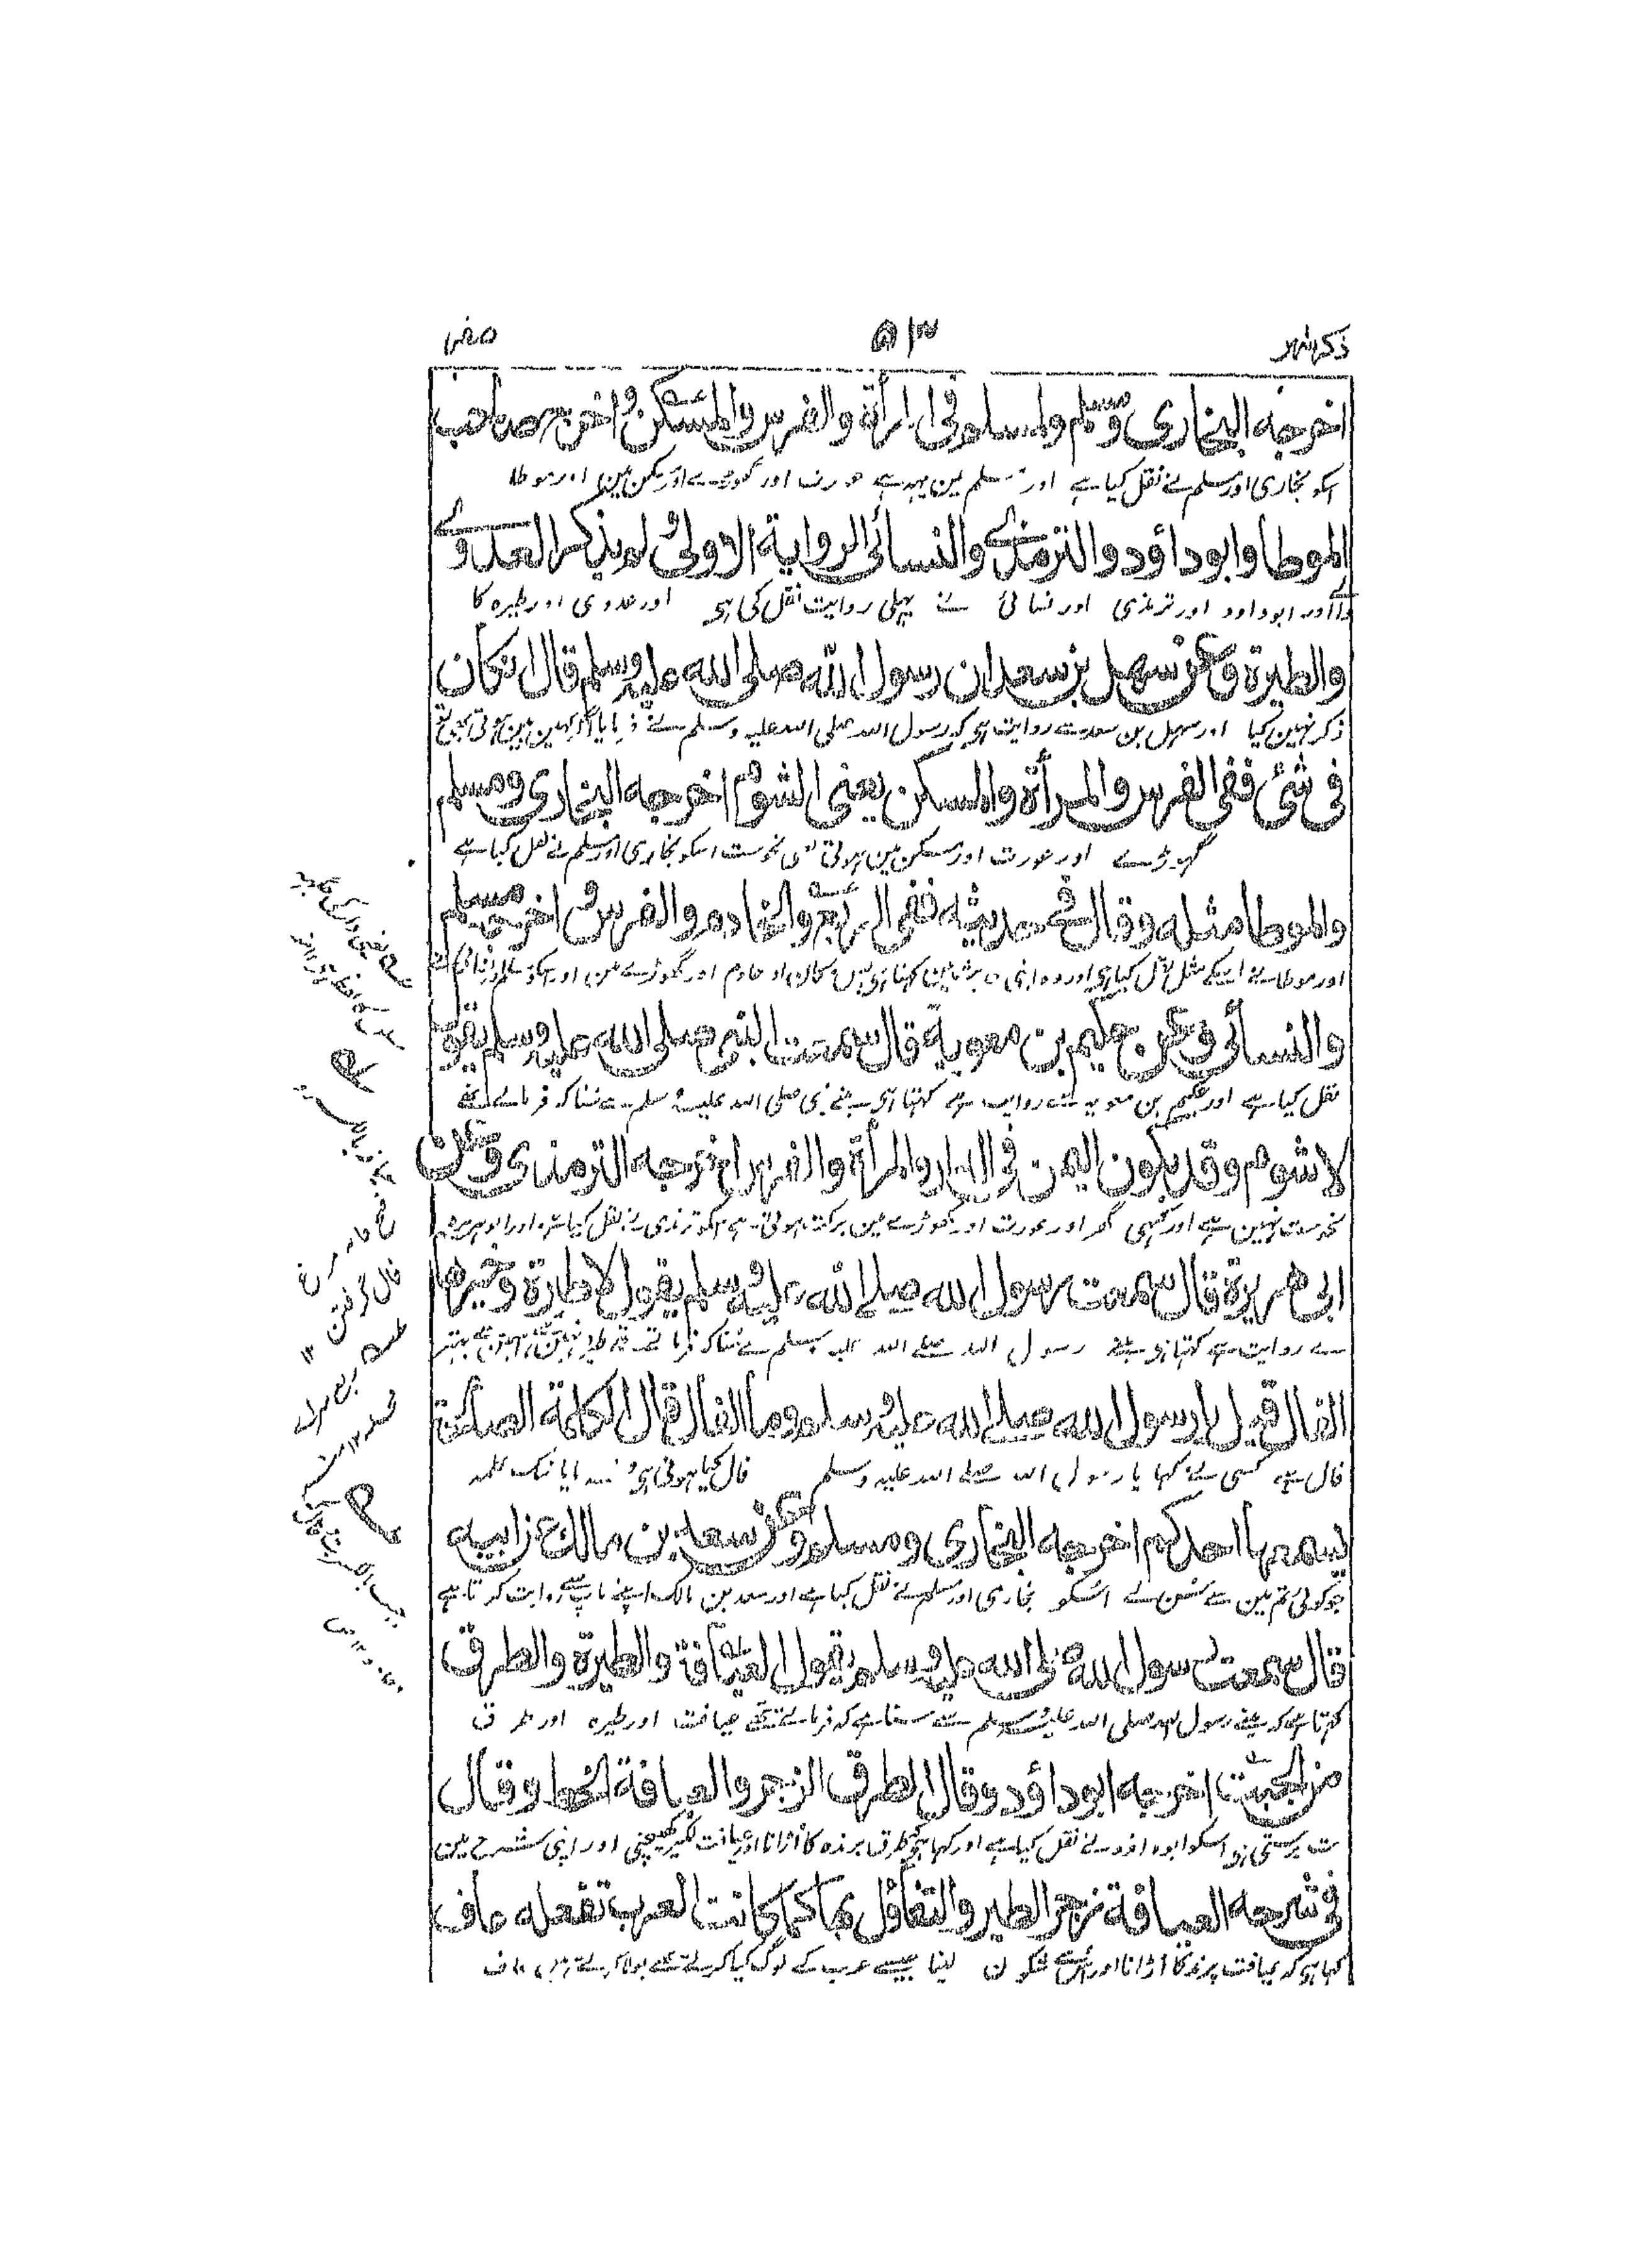 ذکر شہر ۵۱۳ صفر
اخرجه البخاری ومسلم ولمسلم فی المرأة والفرس والمسکن واخرج صاحب
اسکو بخاری اور مسلم نے نقل کیا ہے اور مسلم مین یہہ ہے عورت اور گھوڑے اور مسکن مین اور موطا
الموطا وابوداؤد والترمذے والنسائی الروایة الاولی ولم یذکر العدوے
والے اور ابوداود اور ترمذی اور نسائی نے پہلی روایت نقل کی ہی اور عدوی اور طیرہ کا
والطیرة وعن سهل بن سعد ان رسول الله صلی الله علیه وسلم قال ان کان
ذکر نہین کیا اور سہل بن سعد سے روایت ہی کہ رسول اللہ صلی اللہ علیہ وسلم نے فرمایا
فی شئ ففی الفرس والمرأة والمسکن یعنی الشوم اخرجه البخاری ومسلم
گھوڑے اور عورت اور مسکن مین ہوتی نحوست اسکو بخاری اور مسلم نے نقل کیا ہے
والموطا مثله وقال فی حدیثه ففی الربع والخادم والفرس واخرج مسلم
اور موطا نے اسکے مثل نقل کیا ہی اور وہ اپنی حدیث مین کہتا ہی مکان اور خادم اور گھوڑے مین اور اسکو مسلم
والنسائی وعن حکیم بن معویة قال سمعت النبی صلی الله علیه وسلم یقول
نقل کیا ہے اور حکیم بن معویہ سے روایت ہے کہتا ہی مینے نبی صلی اللہ علیہ وسلم سے سنا کہ فرماتے تھے
لا شوم وقد یکون الیمن فی الدار والمرأة والفرس اخرجه الترمذی وعن
نحوست نہین ہے اور کبھی گھر اور عورت اور گھوڑے مین برکت ہوتی ہے اسکو ترمذی نے نقل کیا ہے اور ابو ہریرہ
ابی هریرة قال سمعت رسول الله صلے الله علیه وسلم یقول لا طیرة وخیرها
سے روایت ہے کہتا ہی مینے رسول اللہ صلے اللہ علیہ وسلم سے سنا کہ فرماتے تھے
الفال قیل یا رسول الله صلے الله علیه وسلم وما الفال قال الکلمة الصالحة
فال ہے کسی نے کہا یا رسول اللہ صلے اللہ علیہ وسلم فال کیا ہوتی ہی فرمایا نیک کلمہ
یسمعها احدکم اخرجه البخاری ومسلم وعن سعد بن مالک عن ابیه
جو کوئی تم مین سے سُن لے اسکو بخاری اور مسلم نے نقل کیا ہے اور سعد بن مالک اپنے باپ سے روایت کرتا ہے
قال سمعت رسول الله صلی الله علیه وسلم یقول العیافة والطیرة والطرق
کہتا ہے کہ مینے رسول اللہ صلی اللہ علیہ وسلم سے سنا ہے کہ فرماتے تھے عیافت اور طیرہ اور طرق
من الجبت اخرجه ابوداؤد وقال الطرق الزجر والعیافة الخط وقال
بت پرستی ہی اسکو ابوداؤد نے نقل کیا ہے اور کہا ہی طرق پرندہ کا اڑانا اور عیافت لکیر کھینچنی اور اپنی شرح مین
فی شرحه العیافة زجر الطیر والتفاؤل بها کما کانت العرب تفعله عاف
کہا ہی کہ عیافت پرند کا اڑانا اور اس سے شگون لینا جیسے عرب کے لوگ کیا کرتے تھے بولا کرتے ہین عاف
فال گرفتن ۱۲